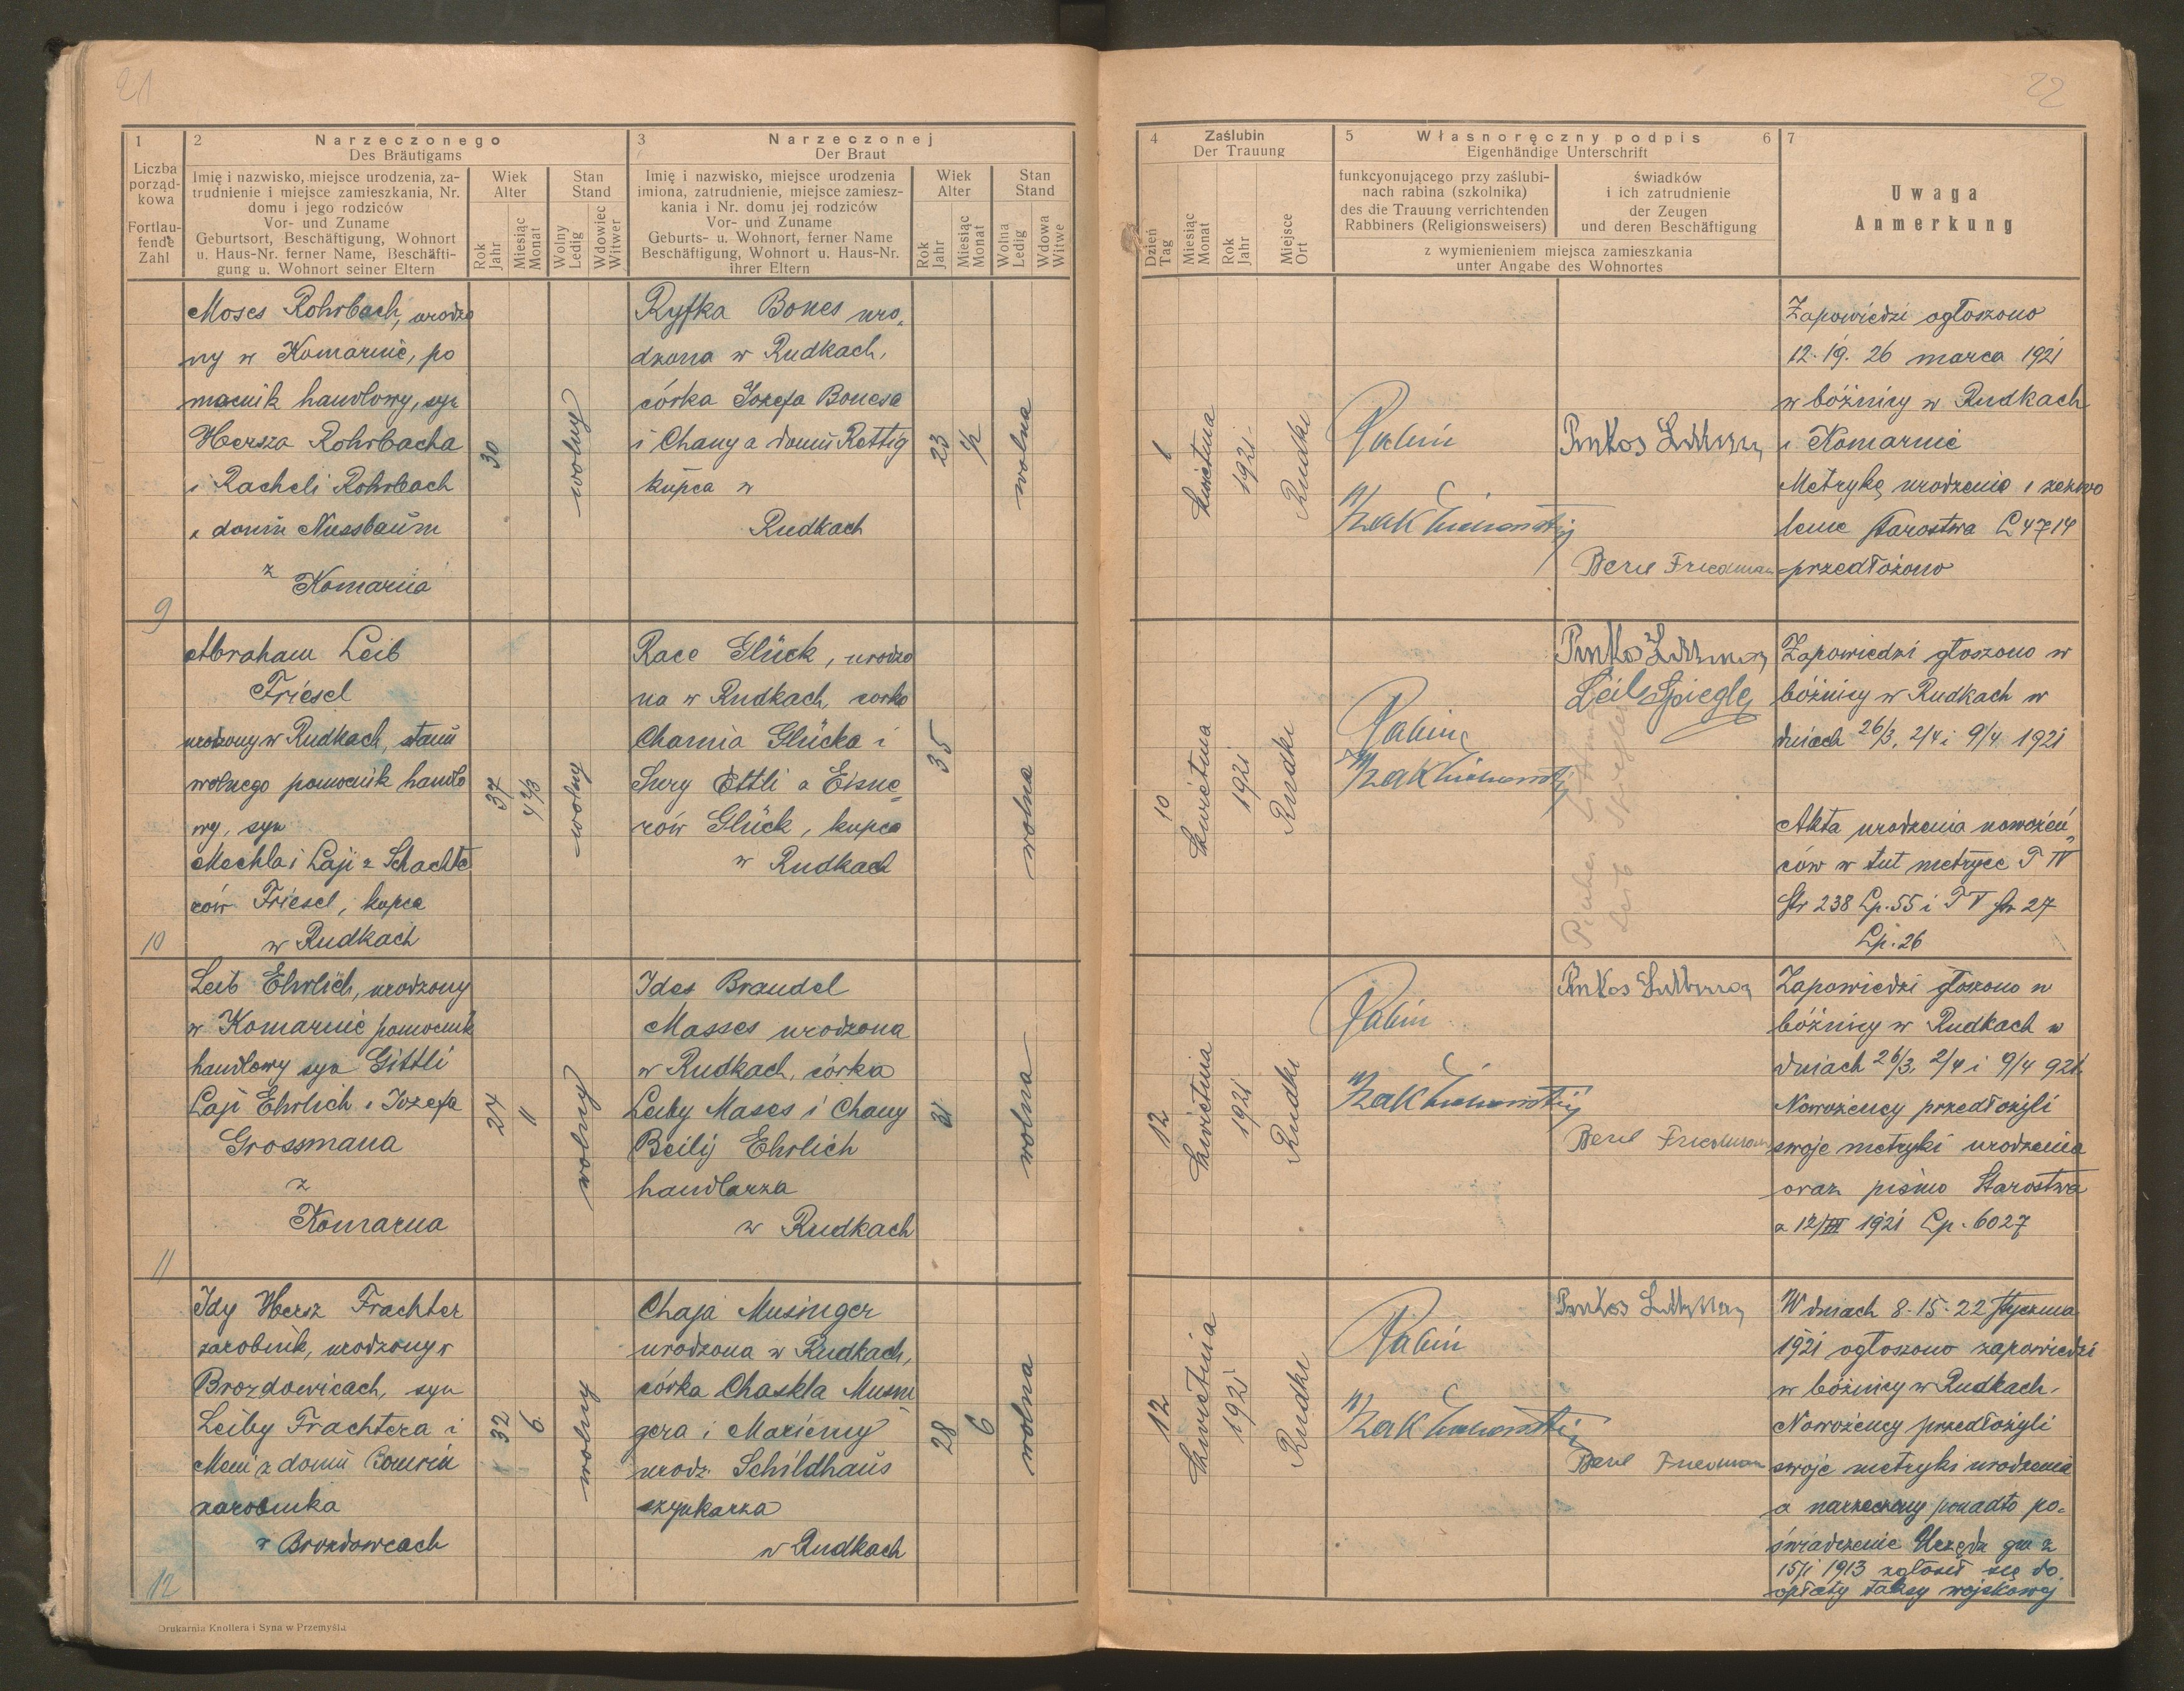 21
1
Liczba
porząd-
kowa
Fortlau-
fende
Zahl
2 Narzeczonego
Des Bräutigams
Imię i nazwisko, miejsce urodzenia, za-
trudnienie i miejsce zamieszkania, Nr.
domu i jego rodziców
Vor- und Zuname
Geburtsort, Beschäftigung, Wohnort
u. Haus-Nr. ferner Name, Beschäfti-
gung u. Wohnort seiner Eltern
Wiek
Alter
Rok
Jahr
Miesiąc
Monat
Stan
Stand
Wolny
Ledig
Wdowiec
Witwer
3 Narzeczonej
Der Braut
Imię i nazwisko, miejsce urodzenia
imiona, zatrudnienie, miejsce zamiesz-
kania i Nr. domu jej rodziców
Vor- und Zuname
Geburts- u. Wohnort, ferner Name
Beschäftigung, Wohnort u. Haus-Nr.
ihrer Eltern
Wiek
Alter
Rok
Jahr
Miesiąc
Monat
Stan
Stand
Wolna
Ledig
Wdowa
Witwe
Moses Rohrbach, urodzo
ny w Komarnie, po
mocnik handlowy, syn
Hersza Rohrbacha
i Racheli Rohrbach
z domu Nussbaum
z
Komarna
9
30
wolny
Ryfka Bones uro-
dzona w Rudkach,
córka Jozefa Bonesa
i Chany z domu Rettig
kupca w
Rudkach
23
1/2
wolna
Abraham Leib
Friesel
urodzony w Rudkach, stanu
wolnego pomocnik handlo
wy, syn
Mechla i Laji z Schachte
rów Friesel, kupca
w Rudkach
10
37
4 2/3
wolny
Race Glück, urodzo
na w Rudkach, corka
Charnia Glücka i
Sury Ettli z Eisne=
rów Glück, kupca
w Rudkach
35
wolna
Leib Ehrlich, urodzony
w Komarnie pomocnik
handlowy syn Gittli
Laji Ehrlich i Jozefa
Grossmana
z
Komarna
11
27
11
wolny
Ides Braudel
Masses urodzona
w Rudkach, córka
Leiby Mases i Chany
Beilij Ehrlich
handlarza
w Rudkach
31
wolna
Idy Hersz Frachter
zarobnik, urodzony w
Brozdowicach, syn
Leiby Frachtera i
Meni z domu
zarobnika
w Brozdowcach
12
32
6
wolny
Chaja Musinger
urodzona w Rudkach,
córka Chaskla Musin
gera i Mariemy
urodz. Schildhaus
szynkarza
w Rudkach
28
6
wolna
Drukarnia Knollera i Syna w Przemyślu
22
4 Zaślubin
Der Trauung
Dzień
Tag
Miesiąc
Monat
Rok
Jahr
Miejsce
Ort
5 Własnoręczny podpis 6
Eigenhändige Unterschrift
funkcyonującego przy zaślubi-
nach rabina (szkolnika)
des die Trauung verrichtenden
Rabbiners (Religionsweisers)
świadków
i ich zatrudnienie
der Zeugen
und deren Beschäftigung
z wymienieniem miejsca zamieszkania
unter Angabe des Wohnortes
7
Uwaga
Anmerkung
1
kwietnia
1921
Rudki
Rabin
Berl Friedman
Zapowiedzi ogłoszono
12. 19. 26 marca 1921
w bóżnicy w Rudkach
i Komarnie
Metrykę urodzenia i zezwo
lenie Starostwa L 4714
przedłożono
10
kwietnia
1921
Rudki
Rabin
Leib Spiegler
Leib Spiegler
Zapowiedzi głoszono w
bóżnicy w Rudkach w
dniach 26/3, 2/4 i 9/4 1921
Akta urodzenia nowożeń=
ców w tut metryce T IV
Str 238 Lp. 55 i T V Str 27
Lp. 26
12
kwietnia
1921
Rudki
Rabin
Berl Friedman
Zapowiedzi głoszono w
bóżnicy w Rudkach w
dniach 26/3, 2/4 i 9/4 921.
Nowożeńcy przedłożyli
swoje metryki urodzenia
oraz pismo Starostwa
z 12/III 1921 Lp. 6027
12
kwietnia
1921
Rudki
Rabin
Berl Friedman
W dniach 8. 15. 22 stycznia
1921 ogłoszono zapowiedzi
w bóżnicy w Rudkach.
Nowożeńcy przedłożyli
swoje metryki urodzenia
a narzeczony ponadto po-
świadczenie Urzędu gm z
15/i 1913 zgłosił się do
opłaty taksy wojskowej